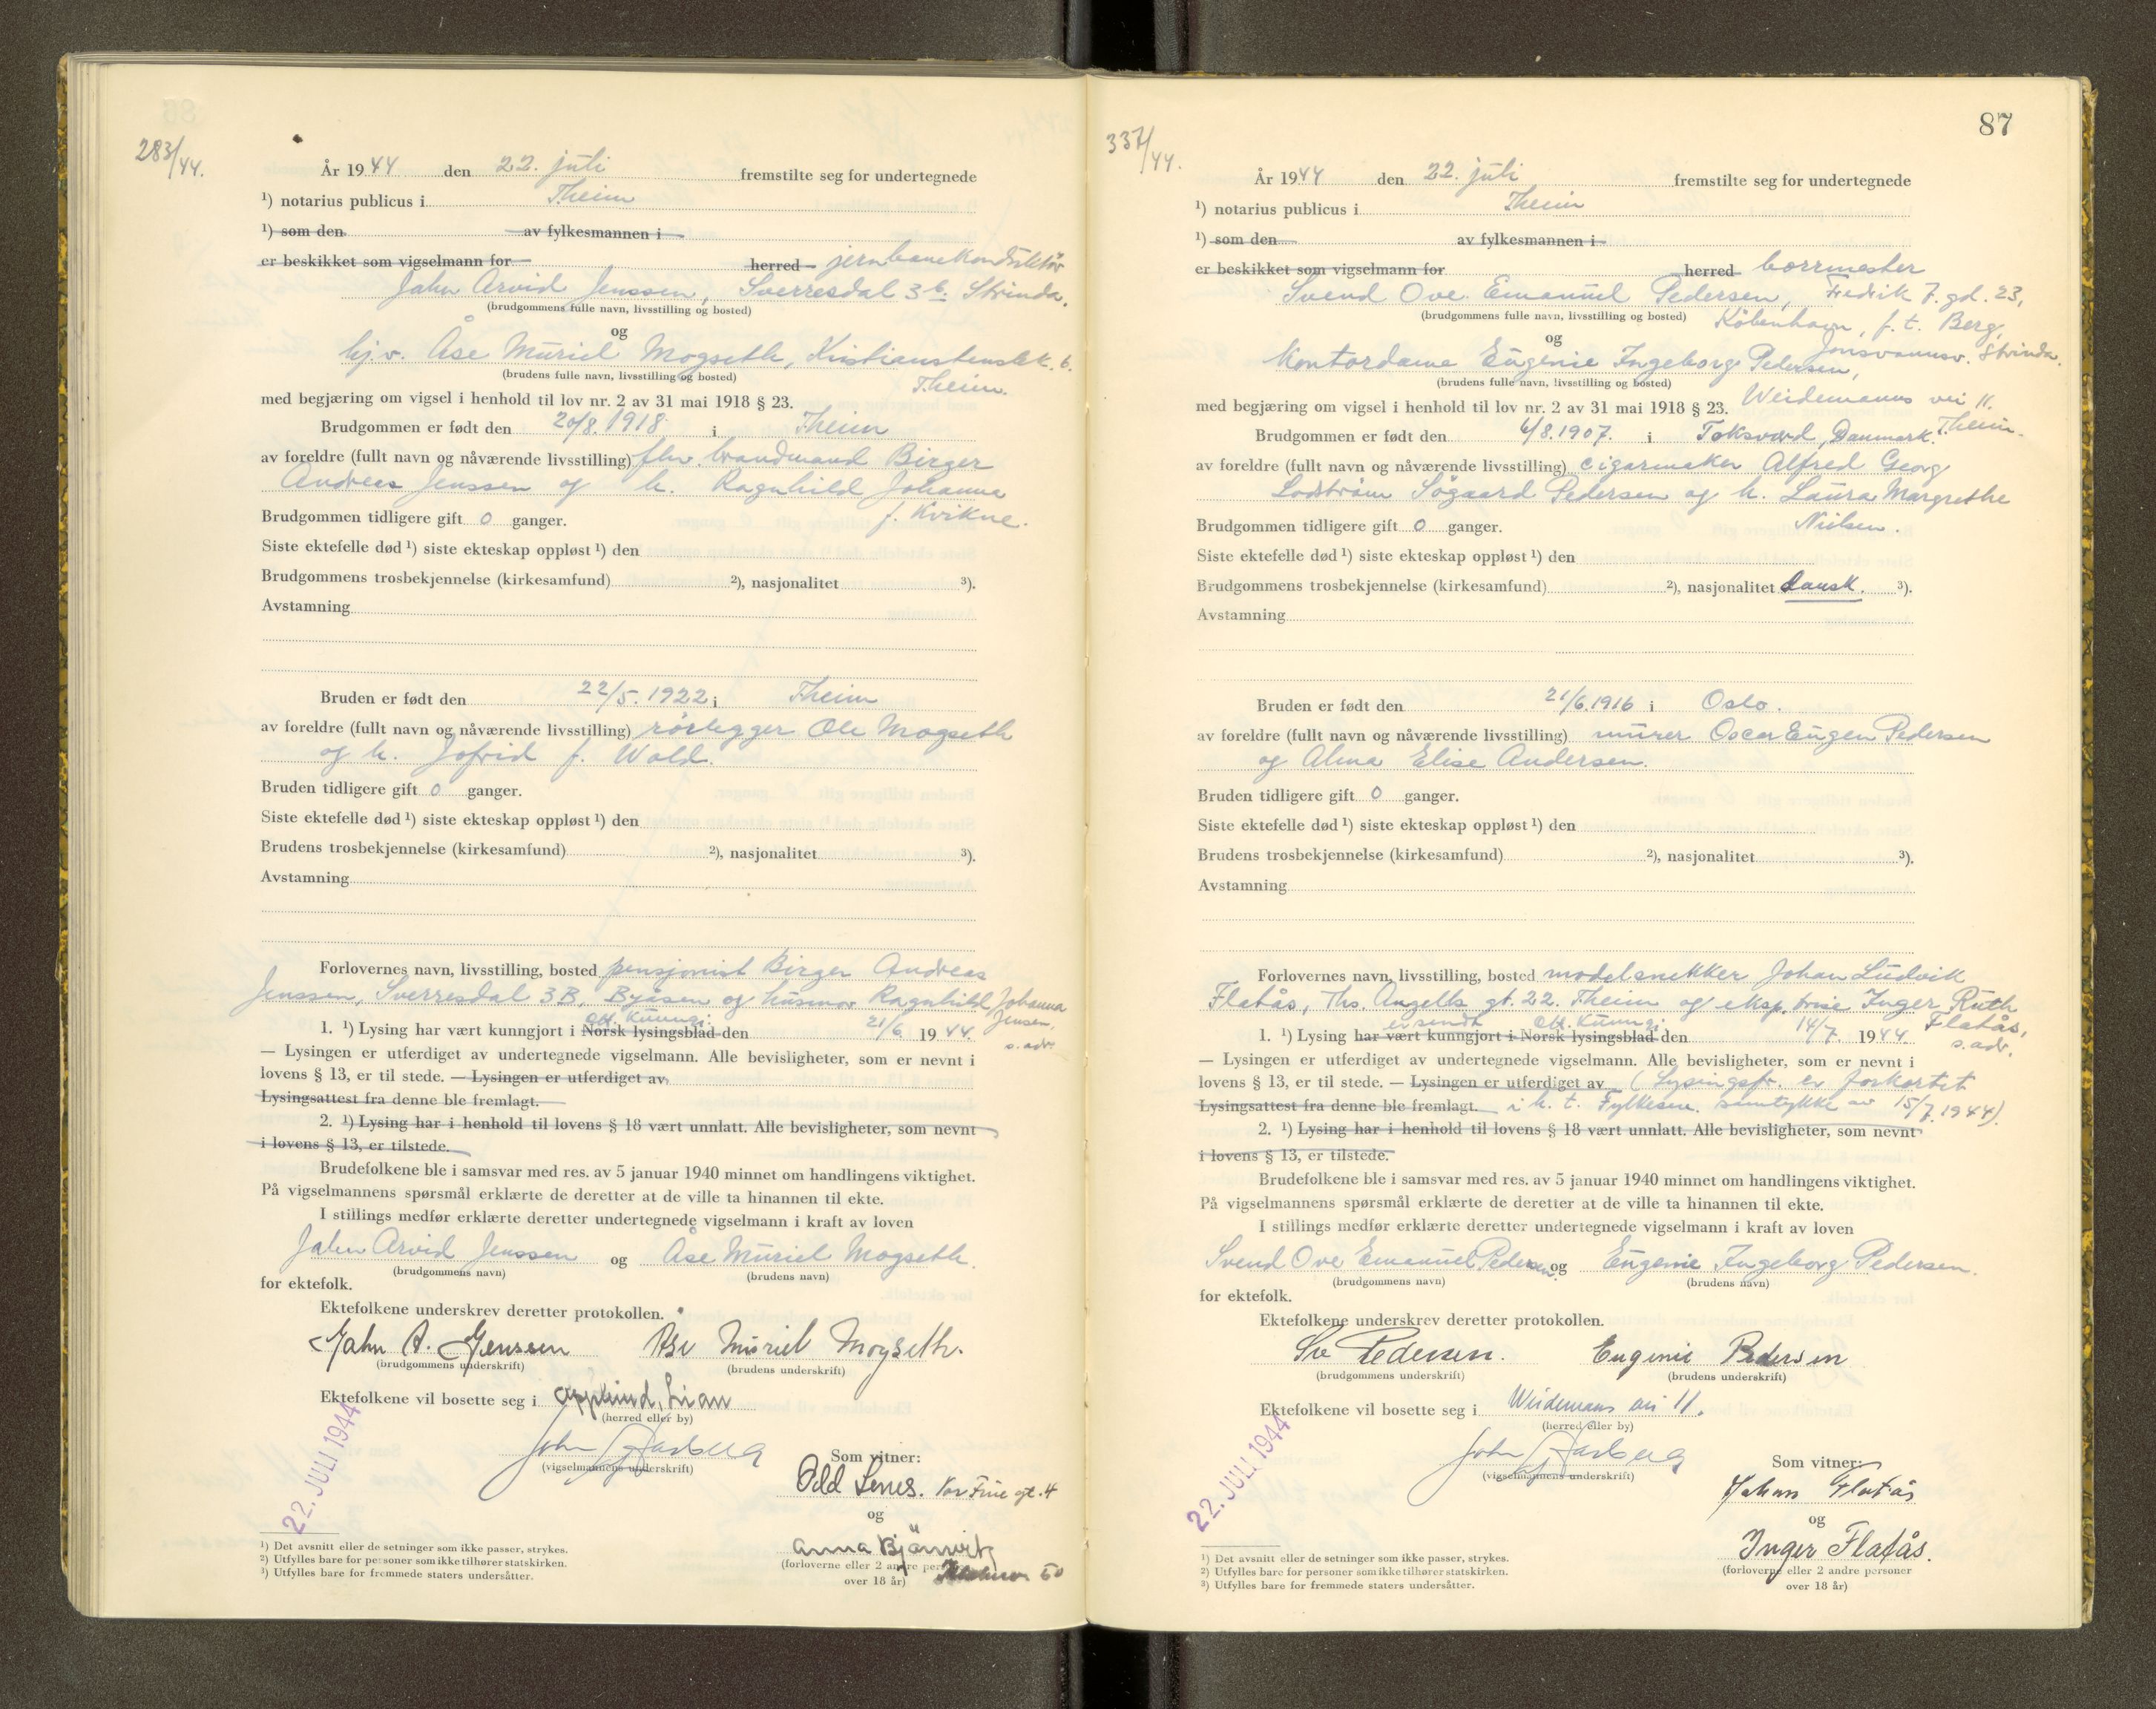 283/44.
År 1944 den 22. juli fremstilte seg for undertegnede
¹) notarius publicus i Theim
¹) som den av fylkesmannen i
er beskikket som vigselmann for herred jernbanekonduktør
Jahn Arvid Jenssen, Sverresdal 3 b. Strinda.
(brudgommens fulle navn, livsstilling og bosted)
og
hj.v. Åse Muriel Mogseth, Kristianstensbk. 6.
(brudens fulle navn, livsstilling og bosted)
Theim.
med begjæring om vigsel i henhold til lov nr. 2 av 31 mai 1918 § 23.
Brudgommen er født den 20/8. 1918 i Theim
av foreldre (fullt navn og nåværende livsstilling) fhv. brandmand Birger
Andreas Jenssen og h. Ragnhild Johanne
f. Kvikne.
Brudgommen tidligere gift 0 ganger.
Siste ektefelle død ¹) siste ekteskap oppløst ¹) den
Brudgommens trosbekjennelse (kirkesamfund) ²), nasjonalitet ³).
Avstamning
Bruden er født den 22/5. 1922 i Theim
av foreldre (fullt navn og nåværende livsstilling) rørlegger Ole Mogseth
og h. Jofrid f. Wold.
Bruden tidligere gift 0 ganger.
Siste ektefelle død ¹) siste ekteskap oppløst ¹) den
Brudens trosbekjennelse (kirkesamfund) ²), nasjonalitet ³).
Avstamning
Forlovernes navn, livsstilling, bosted pensjonist Birger Andreas
Jenssen, Sverresdal 3B, Byåsen og husmor Ragnhild Johanna
Jensen,
s. adr.
Off. Kunngj.
1. ¹) Lysing har vært kunngjort i Norsk lysingsblad den 21/6 1944.
— Lysingen er utferdiget av undertegnede vigselmann. Alle bevisligheter, som er nevnt i
lovens § 13, er til stede. — Lysingen er utferdiget av
Lysingsattest fra denne ble fremlagt.
2. ¹) Lysing har i henhold til lovens § 18 vært unnlatt. Alle bevisligheter, som nevnt
i lovens § 13, er tilstede.
Brudefolkene ble i samsvar med res. av 5 januar 1940 minnet om handlingens viktighet.
På vigselmannens spørsmål erklærte de deretter at de ville ta hinannen til ekte.
I stillings medfør erklærte deretter undertegnede vigselmann i kraft av loven
Jahn Arvid Jenssen og Åse Muriel Mogseth.
(brudgommens navn) (brudens navn)
for ektefolk.
Ektefolkene underskrev deretter protokollen.
Jahn A. Jenssen Åse Muriel Mogseth.
(brudgommens underskrift) (brudens underskrift)
Ektefolkene vil bosette seg i Lian
(herred eller by)
22. JULI 1944
John
(vigselmannens underskrift)
Som vitner:
Odd Senes. Vor Frue gt. 4
og
Anna
(forloverne eller 2 andre personer
over 18 år)
50
¹) Det avsnitt eller de setninger som ikke passer, strykes.
²) Utfylles bare for personer som ikke tilhører statskirken.
³) Utfylles bare for fremmede staters undersåtter.
87
337/44.
År 1944 den 22. juli fremstilte seg for undertegnede
¹) notarius publicus i Theim
¹) som den av fylkesmannen i
er beskikket som vigselmann for herred borrmester
Svend Ove Emanuel Pedersen, Fredrik 7. gd. 23,
(brudgommens fulle navn, livsstilling og bosted) København, f. t. Berg,
og
Jonsvannsv. Strinda.
Kontordame Eugenie Ingeborg Pedersen,
(brudens fulle navn, livsstilling og bosted)
Weidemanns vei 11.
med begjæring om vigsel i henhold til lov nr. 2 av 31 mai 1918 § 23.
Theim.
Brudgommen er født den 6/8. 1907. i Toksværd, Danmark.
av foreldre (fullt navn og nåværende livsstilling) cigarmaker Alfred Georg
Søgaard Pedersen og h. Laura Margrethe
Nielsen.
Brudgommen tidligere gift 0 ganger.
Siste ektefelle død ¹) siste ekteskap oppløst ¹) den
Brudgommens trosbekjennelse (kirkesamfund) ²), nasjonalitet dansk. ³).
Avstamning
Bruden er født den 21/6. 1916 i Oslo.
av foreldre (fullt navn og nåværende livsstilling) murer Oscar Eugen Pedersen
og Alma Elise Andersen.
Bruden tidligere gift 0 ganger.
Siste ektefelle død ¹) siste ekteskap oppløst ¹) den
Brudens trosbekjennelse (kirkesamfund) ²), nasjonalitet ³).
Avstamning
Forlovernes navn, livsstilling, bosted modelsnekker Johan Ludvik
Flatås, Ths. Angells gt. 22. Theim og eksp. trise Inger Ruth
Flatås,
s. adr.
er sendt Off. Kunngj.
1. ¹) Lysing har vært kunngjort i Norsk lysingsblad den 14/7. 1944.
— Lysingen er utferdiget av undertegnede vigselmann. Alle bevisligheter, som er nevnt i
lovens § 13, er til stede. — Lysingen er utferdiget av (Lysingsfr. er forkortet
Lysingsattest fra denne ble fremlagt. i h. t. Fylkesm. samtykke av 15/7. 1944).
2. ¹) Lysing har i henhold til lovens § 18 vært unnlatt. Alle bevisligheter, som nevnt
i lovens § 13, er tilstede.
Brudefolkene ble i samsvar med res. av 5 januar 1940 minnet om handlingens viktighet.
På vigselmannens spørsmål erklærte de deretter at de ville ta hinannen til ekte.
I stillings medfør erklærte deretter undertegnede vigselmann i kraft av loven
Svend Ove Emanuel Pedersen og Eugenie Ingeborg Pedersen.
(brudgommens navn) (brudens navn)
for ektefolk.
Ektefolkene underskrev deretter protokollen.
Sv Pedersen. Eugenie Pedersen
(brudgommens underskrift) (brudens underskrift)
Ektefolkene vil bosette seg i Weidemans vei 11.
(herred eller by)
22. JULI 1944
John
(vigselmannens underskrift)
Som vitner:
Johan Flatås
og
Inger Flatås.
(forloverne eller 2 andre personer
over 18 år)
¹) Det avsnitt eller de setninger som ikke passer, strykes.
²) Utfylles bare for personer som ikke tilhører statskirken.
³) Utfylles bare for fremmede staters undersåtter.